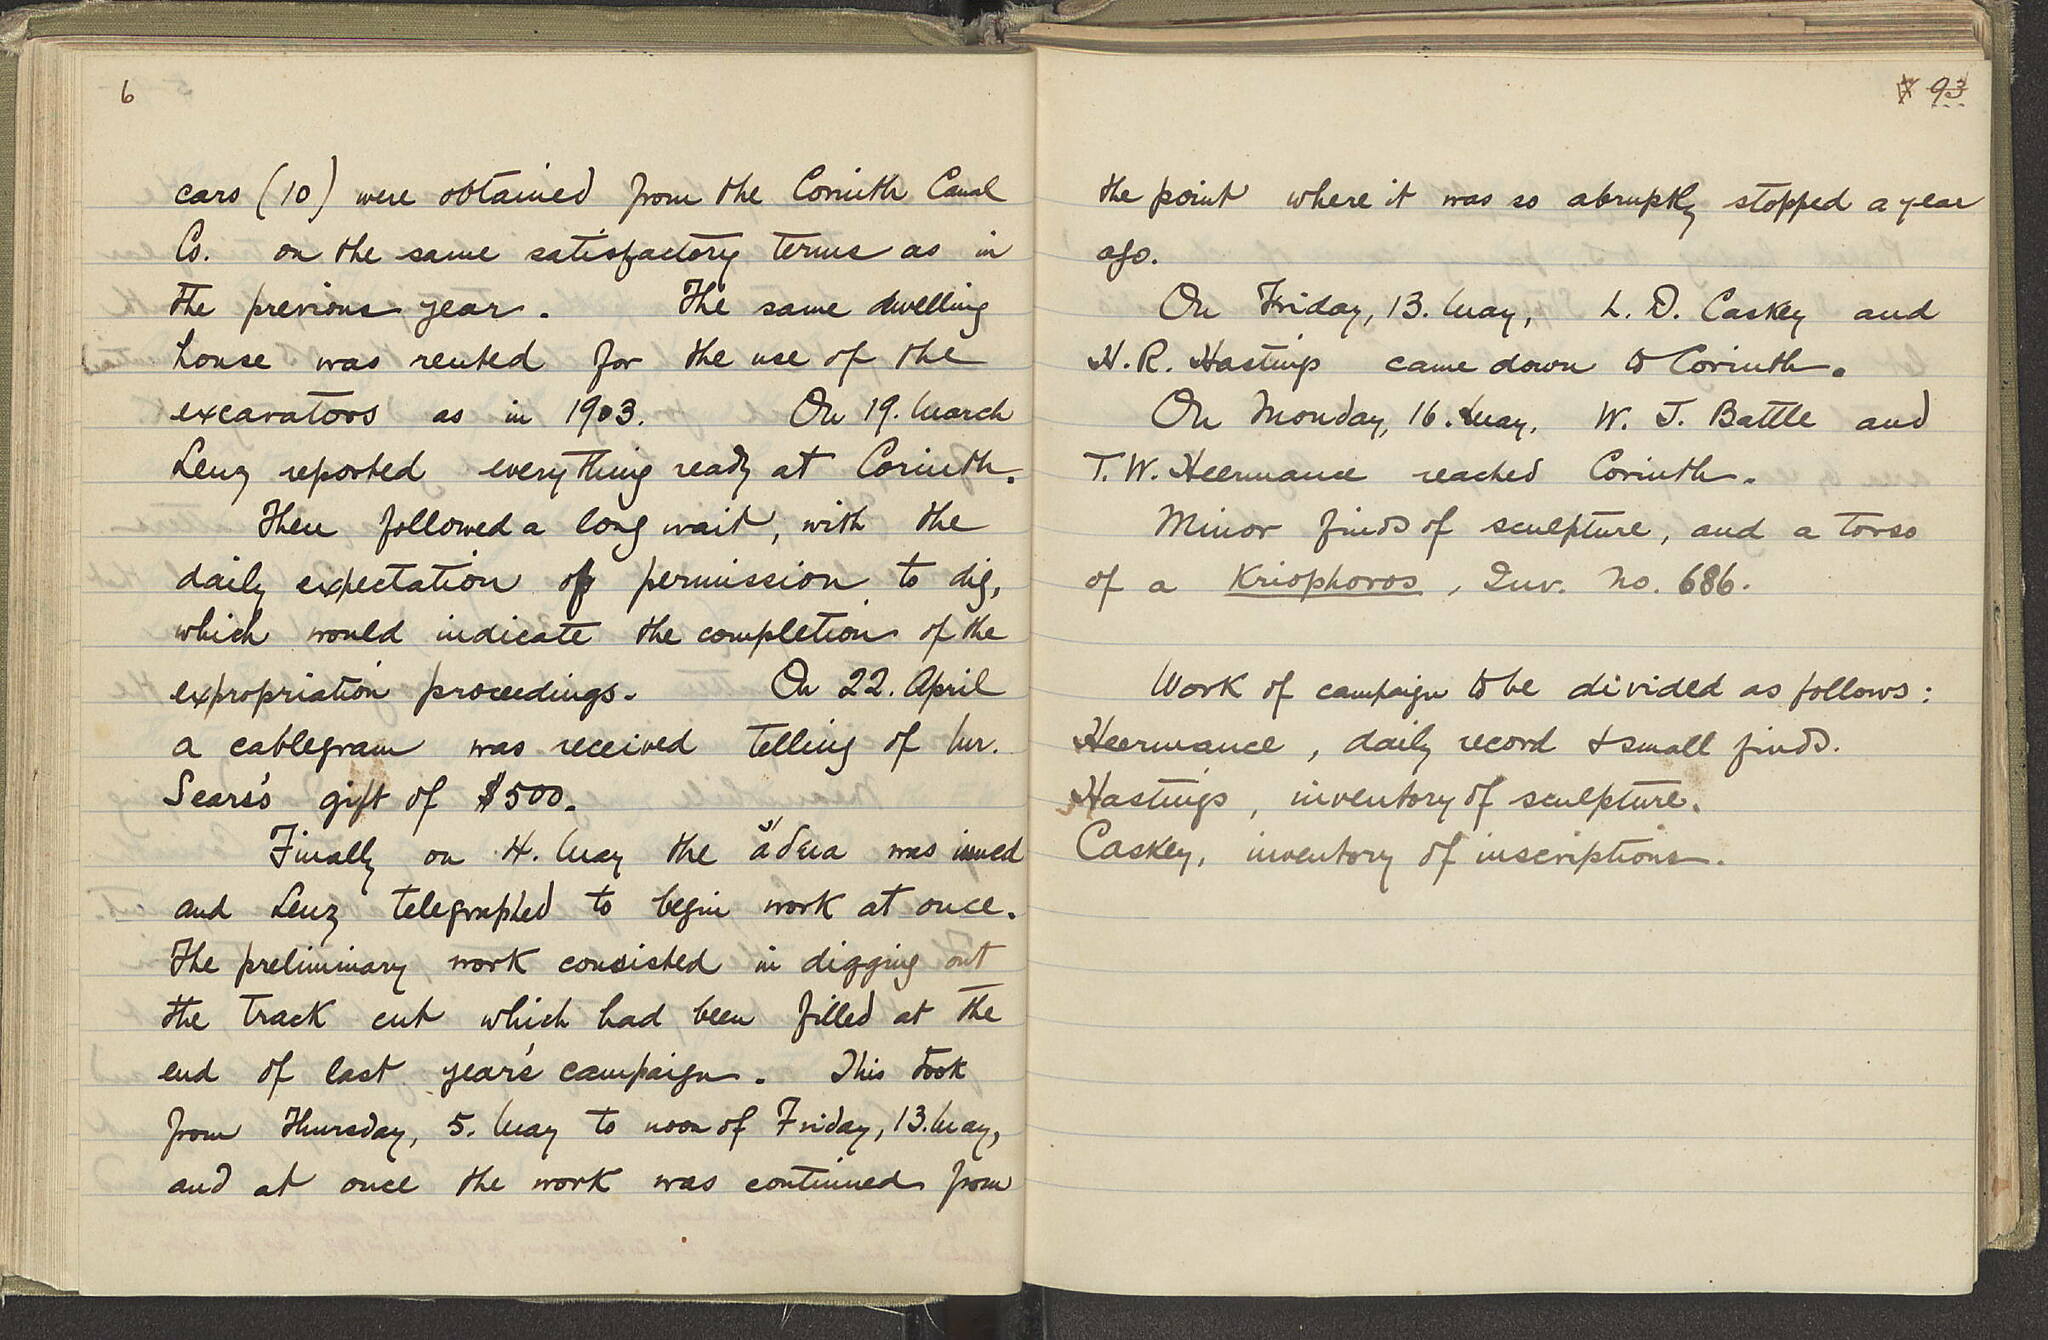 6
cars (10) were obtained from the Corinth Canal
Co. on the same satisfactory terms as in
the previous year. The same dwelling
house was rented for the use of the
excavators as in 1903. On 19. March
Lenz reported everything ready at Corinth.
Then followed a long wait, with the
daily expectation of permission to dig,
which would indicate the completion of the
expropriation proceedings. On 22. April
a cablegram was received telling of Mr.
Sears's gift of $500.
Finally on 4. May the ἄδεια was issued
and Lenz telegraphed to begin work at once.
The preliminary work consisted in digging out
the track cut which had been filled at the
end of last year's campaign. This took
from Thursday, 5. May to noon of Friday, 13. May,
and at once the work was continued from
93
the point where it was so abruptly stopped a year
ago.
On Friday, 13. May, L. D. Caskey and
H. R. Hastings came down to Corinth.
On Monday, 16. May, W. J. Battle and
T. W. Heermance reached Corinth.
Minor finds of sculpture, and a torso
of a Kriophoros, Inv. No. 686.
Work of campaign to be divided as follows:
Heermance, daily record & small finds.
Hastings, inventory of sculpture.
Caskey, inventory of inscriptions.